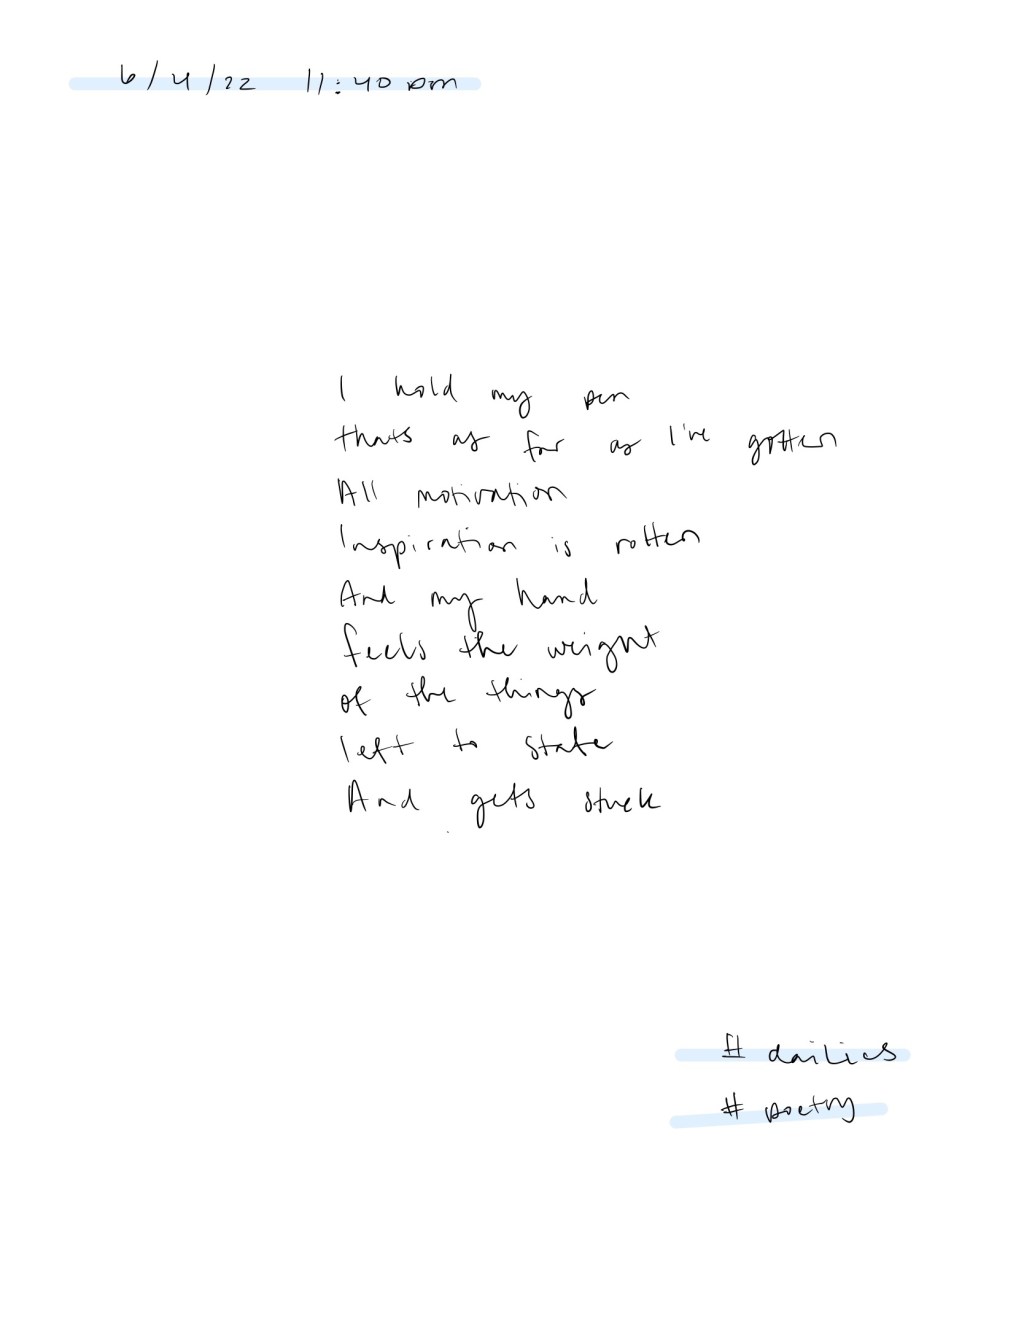 6/4/22 11:40 pm
I hold my pen
thats as far as I've gotten
All motivation
Inspiration is rotten
And my hand
feels the weight
of the things
left to state
And gets stuck
# dailies
# poetry